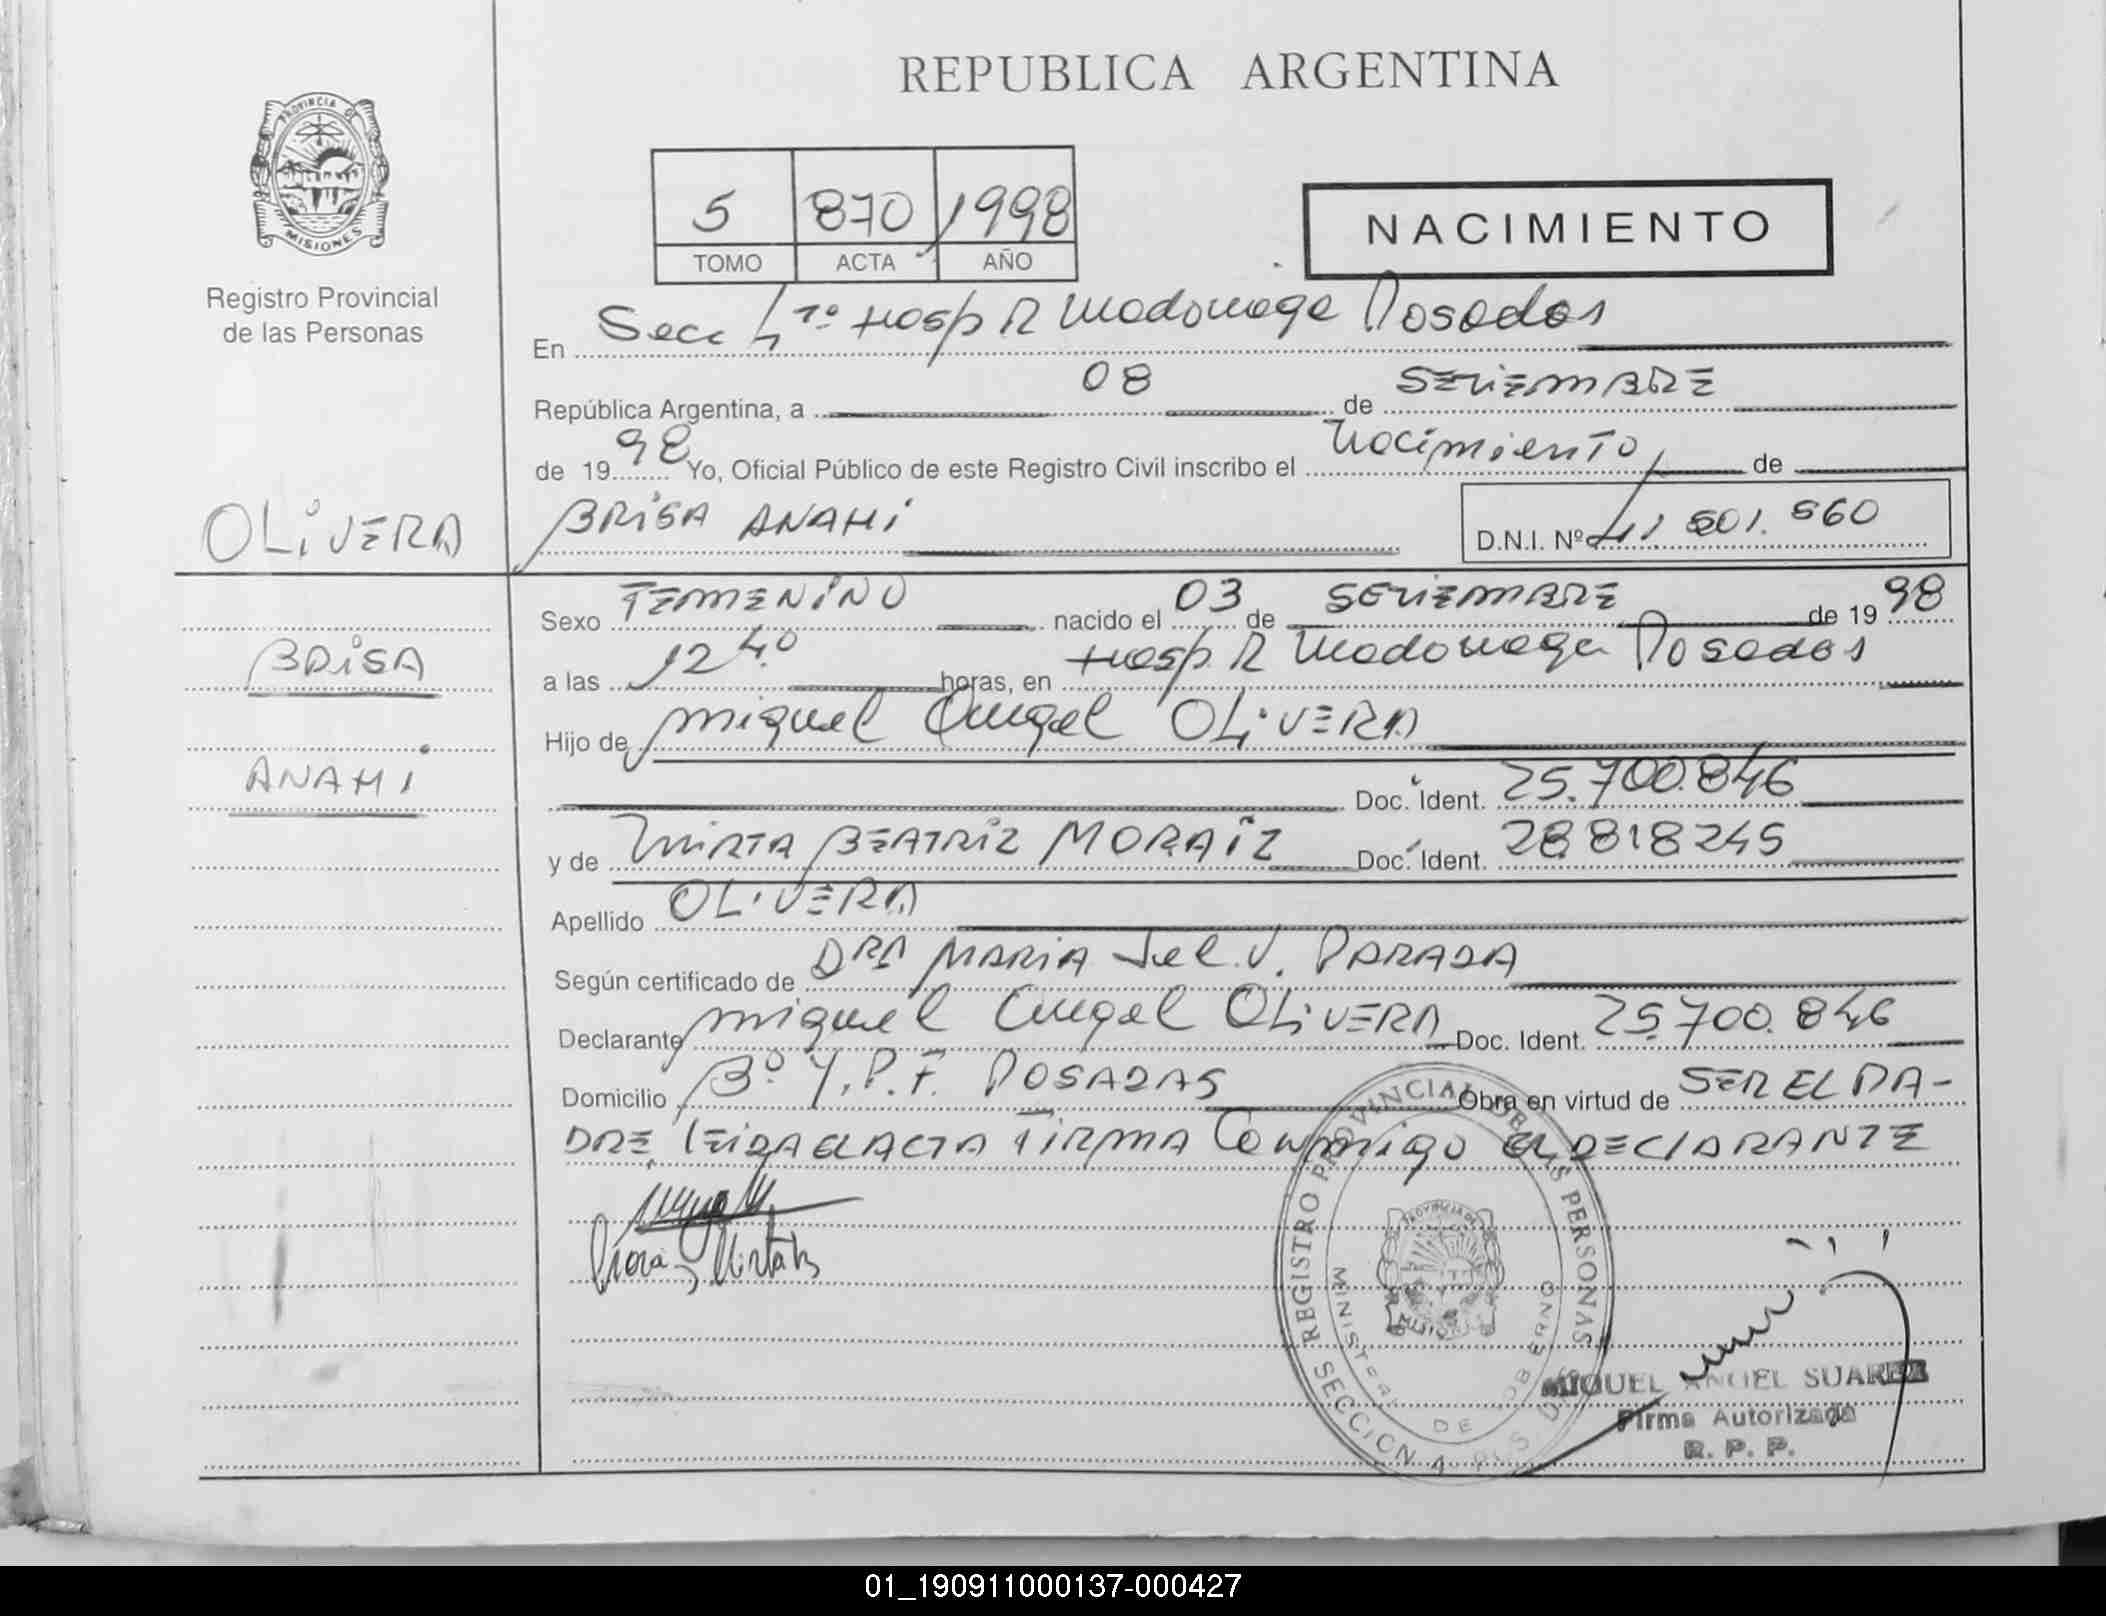 REPUBLICA ARGENTINA
PROVINCIA DE
MISIONES
Registro Provincial
de las Personas
5 870 1998
TOMO ACTA AÑO
NACIMIENTO
En Secc 4ta Hosp R Madariaga Posadas
República Argentina, a 08 de SETIEMBRE
de 1998 Yo, Oficial Público de este Registro Civil inscribo el Nacimiento de
OLIVERA
BRISA ANAHI
D.N.I. Nº 41.501.560
Sexo FEMENINO nacido el 03 de SETIEMBRE de 1998
BRISA
a las 12 40 horas, en Hosp. R Madariaga Posadas
Hijo de Miguel Angel OLIVERA
ANAHI
Doc. Ident. 25.700.846
y de MIRTA BEATRIZ MORAIZ Doc. Ident. 28.818245
Apellido OLIVERA
Según certificado de DRA MARIA del V. PARADA
Declarante Miguel Angel OLIVERA Doc. Ident. 25.700.846
Domicilio Bº Y.P.F. POSADAS Obra en virtud de SER EL PA-
DRE, LEIDA EL ACTA FIRMA Conmigo EL DECLARANTE
REGISTRO PROVINCIAL DE LAS PERSONAS
MINISTERIO DE GOBERNO
SECCION 4
MIGUEL ANGEL SUAREZ
Firma Autorizada
R. P. P.
01_190911000137-000427